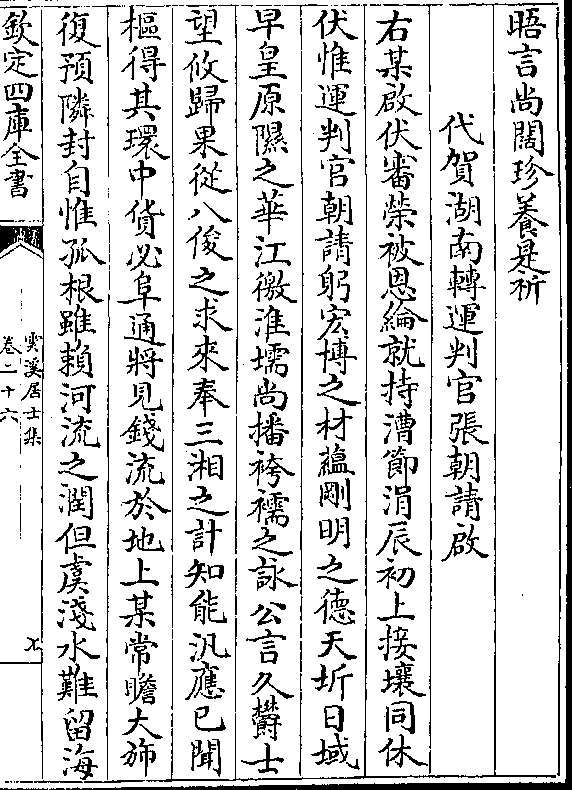 晤言尚闊珍養是祈
代賀湖南轉運判官張朝請啟
右某啟伏審榮被恩綸就持漕節涓辰初上接壤同休
伏惟運判官朝請躬宏博之材蘊剛明之德天圻日域
早皇原隰之華江徼淮壖尚播袴襦之詠公言久鬱士
望攸歸果從八俊之求來奉三湘之計知能汎應已聞
樞得其環中貨必阜通將見錢流於地上某常瞻大斾
復預隣封自惟孤根雖賴河流之潤但虞淺水難留海
欽定四庫全書
雲溪居士集
卷二十六